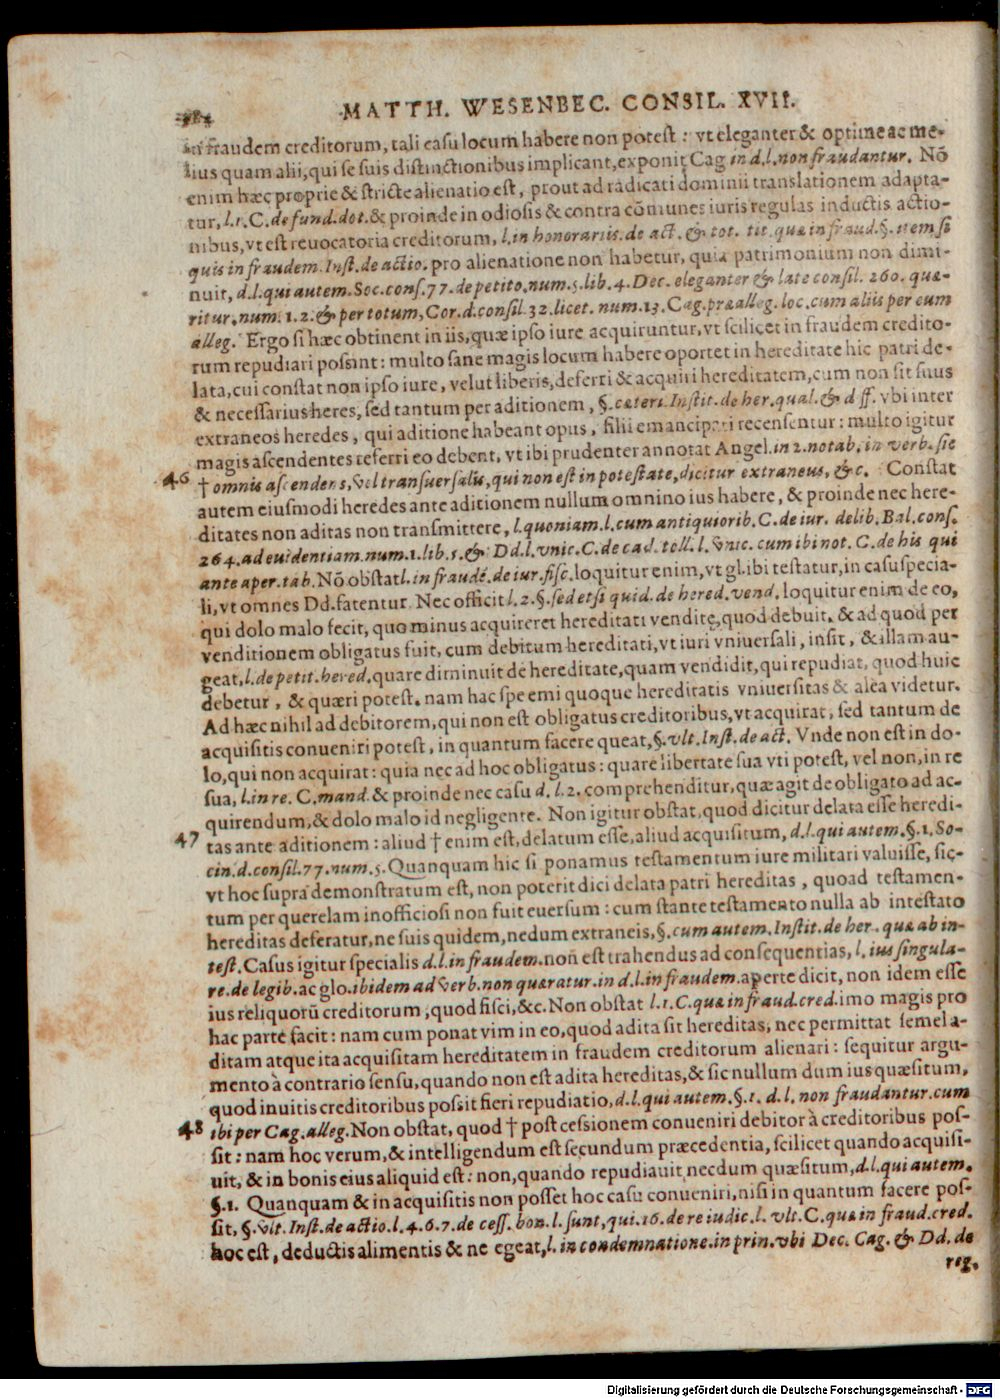 MATTH. WESENBEC. CONSIL. XVII.
in fraudem creditorum, tali casu locum habere non potest: vt eleganter & optime ac me-
lius quam alii, qui se suis distinctionibus implicant, exponit Cag in d.l. non fraudantur. Nõ
enim hæc proprie & stricte alienatio est, prout ad radicati dominii translationem adapta-
tur, l.1. C. de fund. dot. & proinde in odiosis & contra cõmunes iuris regulas inductis actio-
nibus, vt est reuocatoria creditorum, l. in honorariis. de act. & tot. tit. quæ in fraud. §. item si
quis in fraudem. Inst. de actio. pro alienatione non habetur, quia patrimonium non dimi-
nuit, d.l. qui autem. Soc. cons. 77. de petito, num. 5. lib. 4. Dec. eleganter & late consil. 260. quæ-
ritur. num. 1. 2. & per totum, Cor. d. consil 32. licet. num. 13. Cag. præalleg. loc. cum aliis per eum
alleg. Ergo si hæc obtinent in iis, quæ ipso iure acquiruntur, vt scilicet in fraudem credito-
rum repudiari possint: multo sane magis locum habere oportet in hereditate hic patri de-
lata, cui constat non ipso iure, velut liberis, deferri & acquiri hereditatem, cum non sit suus
& necessarius heres, sed tantum per aditionem, §. cæteri. Instit. de her. qual. & d ff. vbi inter
extraneos heredes, qui aditione habeant opus, filii emancipati recensentur: multo igitur
magis ascendentes referri eo debent, vt ibi prudenter annotat Angel. in 2. notab. in verb. sic
46 † omnis ascendens, vel transuersalis, qui non est in potestate, dicitur extraneus, &c. Constat
autem eiusmodi heredes ante aditionem nullum omnino ius habere, & proinde nec here-
ditates non aditas non transmittere, l. quoniam. l. cum antiquiorib. C. de iur. delib. Bal. cons.
264. ad euidentiam. num. 1. lib. 5. & Dd. l. vnic. C. de cad. toll. l. vnic. cum ibi not. C. de his qui
ante aper. tab. Nõ obstat l. in fraudẽ. de iur. fisc. loquitur enim, vt gl. ibi testatur, in casu specia-
li, vt omnes Dd. fatentur. Nec officit l. 2. §. sed etsi quid. de hered. vend. loquitur enim de eo,
qui dolo malo fecit, quo minus acquireret hereditati venditę, quod debuit, & ad quod per
venditionem obligatus fuit, cum debitum hereditati, vt iuri vniuersali, insit, & illam au-
geat, l. de petit. hered, quare diminuit de hereditate, quam vendidit, qui repudiat, quod huic
debetur, & quæri potest. nam hac spe emi quoque hereditatis vniuersitas & alea videtur.
Ad hæc nihil ad debitorem, qui non est obligatus creditoribus, vt acquirat, sed tantum de
acquisitis conueniri potest, in quantum facere queat, §. vlt. Inst. de act. Vnde non est in do-
lo, qui non acquirat: quia nec ad hoc obligatus: quare libertate sua vti potest, vel non, in re
sua, l. in re. C. mand. & proinde nec casu d. l. 2. comprehenditur, quæ agit de obligato ad ac-
quirendum, & dolo malo id negligente. Non igitur obstat, quod dicitur delata esse heredi-
47 tas ante aditionem: aliud † enim est, delatum esse, aliud acquisitum, d.l. qui autem. §. 1. So-
cin. d. consil. 77. num. 5. Quanquam hic si ponamus testamentum iure militari valuisse, sic-
vt hoc supra demonstratum est, non poterit dici delata patri hereditas, quoad testamen-
tum per querelam inofficiosi non fuit euersum: cum stante testamento nulla ab intestato
hereditas deferatur, ne suis quidem, nedum extraneis, §. cum autem. Instit. de her. quæ ab in-
test. Casus igitur specialis d.l. in fraudem. non est trahendus ad consequentias, l. ius singula-
re. de legib. ac glo. ibidem ad verb. non quæratur. in d.l. in fraudem. aperte dicit, non idem esse
ius reliquorũ creditorum, quod fisci, &c. Non obstat l.1. C. quæ in fraud. cred. imo magis pro
hac parte facit: nam cum ponat vim in eo, quod adita sit hereditas, nec permittat semel a-
ditam atque ita acquisitam hereditatem in fraudem creditorum alienari: sequitur argu-
mento à contrario sensu, quando non est adita hereditas, & sic nullum dum ius quæsitum,
quod inuitis creditoribus possit fieri repudiatio, d.l. qui autem. §. 1. d. l. non fraudantur. cum
48 ibi per Cag. alleg. Non obstat, quod † post cessionem conueniri debitor à creditoribus pos-
sit: nam hoc verum, & intelligendum est secundum præcedentia, scilicet quando acquisi-
uit, & in bonis eius aliquid est: non, quando repudiauit necdum quæsitum, d.l. qui autem.
§.1. Quanquam & in acquisitis non posset hoc casu conueniri, nisi in quantum facere pos-
sit, §. vlt. Inst. de actio. l. 4. 6. 7. de cess. bon. l. sunt, qui. 16. de re iudic. l. vlt. C. quæ in fraud. cred.
hoc est, deductis alimentis & ne egeat, l. in condemnatione. in prin. vbi Dec. Cag. & Dd. de
reg.
Digitalisierung gefördert durch die Deutsche Forschungsgemeinschaft - DFG